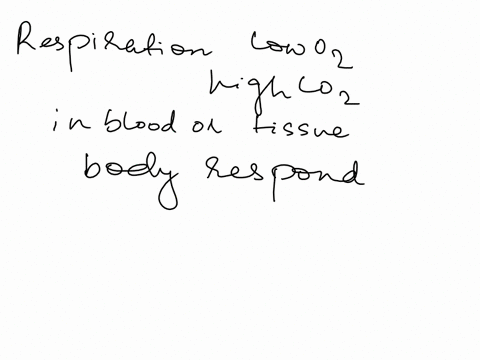 Respiration Low O2
high CO2
in blood or tissue
body respond